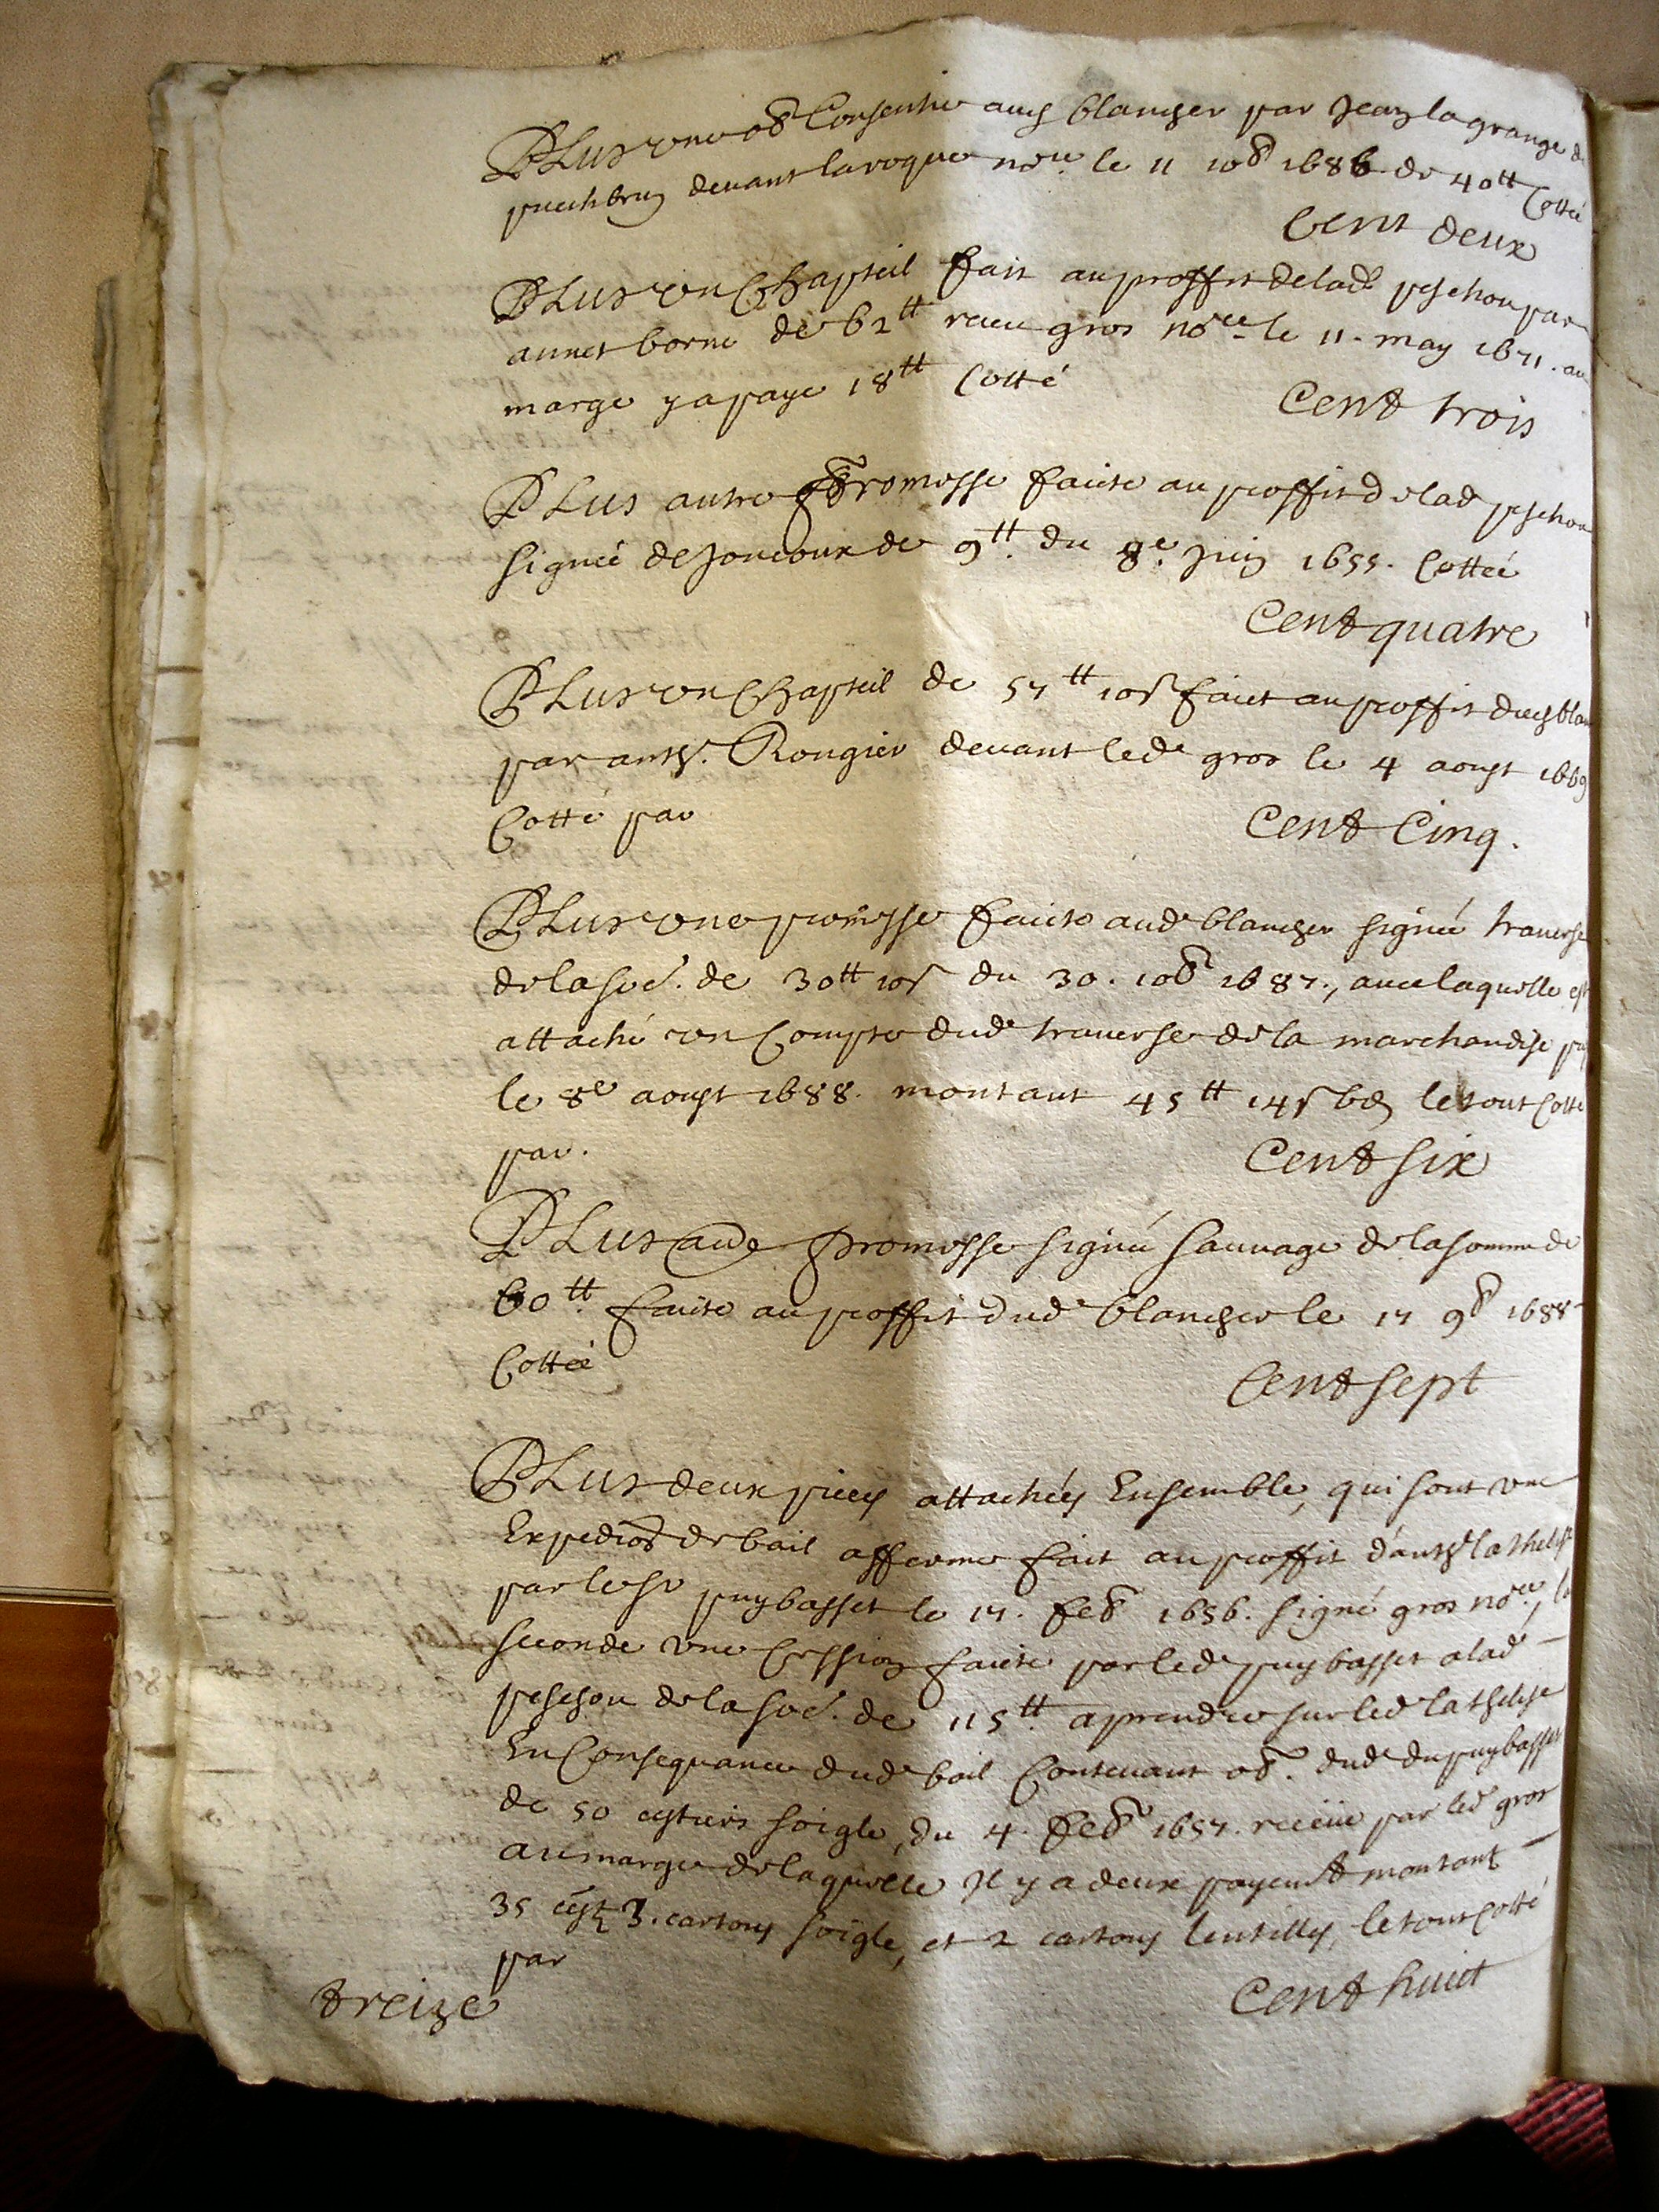 PLus vne ob Consentie aud blancher par Jean lagrange de
puechbrun deuant laroque nore. le 11 10b 1686 de 40tt Cottée
Cent deux
PLus vn Chapteil fait au proffit de lad. peschou par
annet borne de 62tt receu gros nore le 11. may 1671. au
marge y a paye 18tt Cotté
Cent trois
PLus autre promesse faicte au proffit de lad peschou
signée de Joucoux de 9tt. du 8e. Juin 1655. Cottée
Cent quatre
PLus vn Chapteil de 57tt 10s faict au proffit dud blan
par anth. Rougier deuant led. gros le 4 aoust 1669
Cotté par
Cent Cinq.
PLus vne promesse faicte aud. blancher signée trauerse
de la soe. de 30tt 10s du 30. 10b 1687., auec laquelle est
attaché vn Compte dud. trauerse de la marchandise
le 8e aoust 1688. montant 45tt 14s 6d, le tout Cotté
par.
Cent six
PLus aue promesse signée Sauuage de la somme de
60tt. faicte au proffit dud. blancher le 17 9b 1688
Cottée
Cent sept
PLus deux pieces attachées Ensemble, qui sont vne
Expedion de bail afferme fait au proffit d'anth lathelise
par le sr puybasset le 17. feb 1656. signé gros nore, la
seconde vne Cession faicte par led puybasset a lad
peschou de la soe. de 115tt. a prendre sur led lathelise
En Consequance dud. bail Contenant ob. dud. du puybasset
de 50 cestiers soigle, du 4. feb 1657. receüe par led gros
au marge de laquelle Il y a deux payemt montant
35 cest 3. cartons soigle, et 2 cartons lentilles, le tout Cotté
par
Cent huict
treize